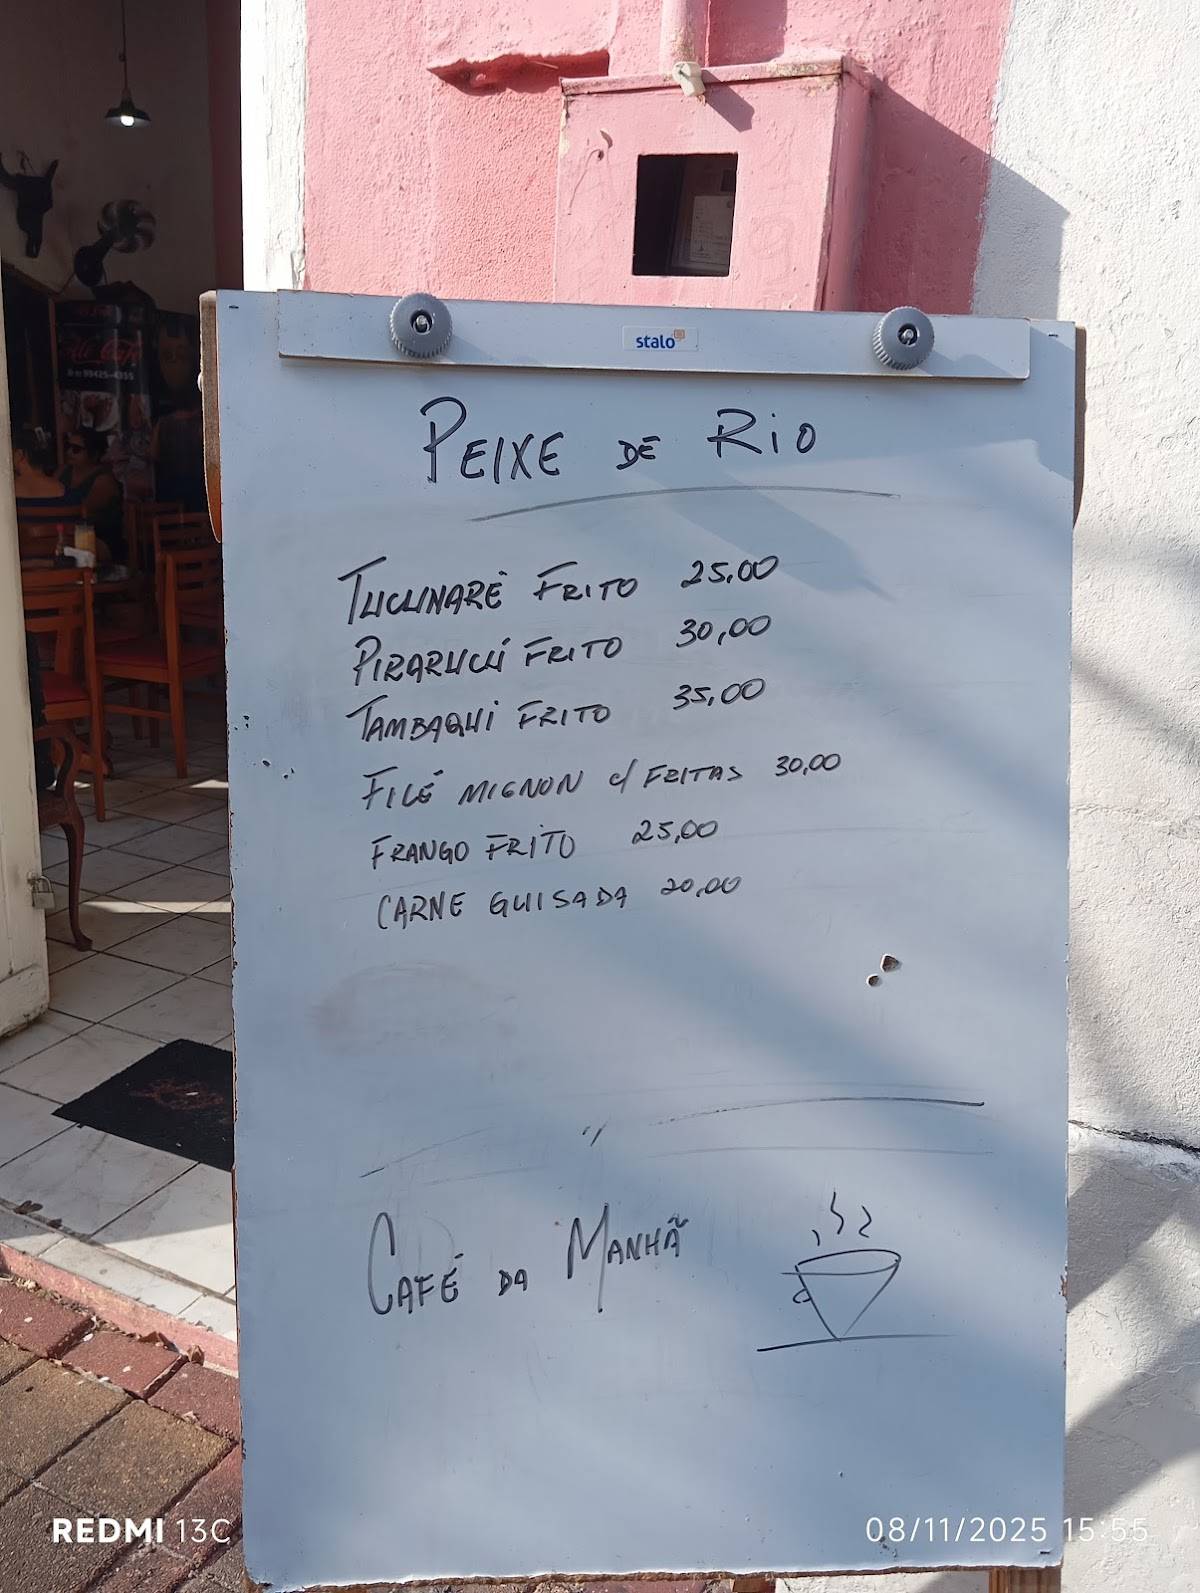 stalo
PEIXE DE RIO
TUCUNARÉ FRITO 25,00
PIRARUCÚ FRITO 30,00
TAMBAQUI FRITO 35,00
FILÉ MIGNON c/ FRITAS 30,00
FRANGO FRITO 25,00
CARNE GUISADA 20,00
CAFÉ DA MANHÃ
REDMI 13C
08/11/2025 15:55